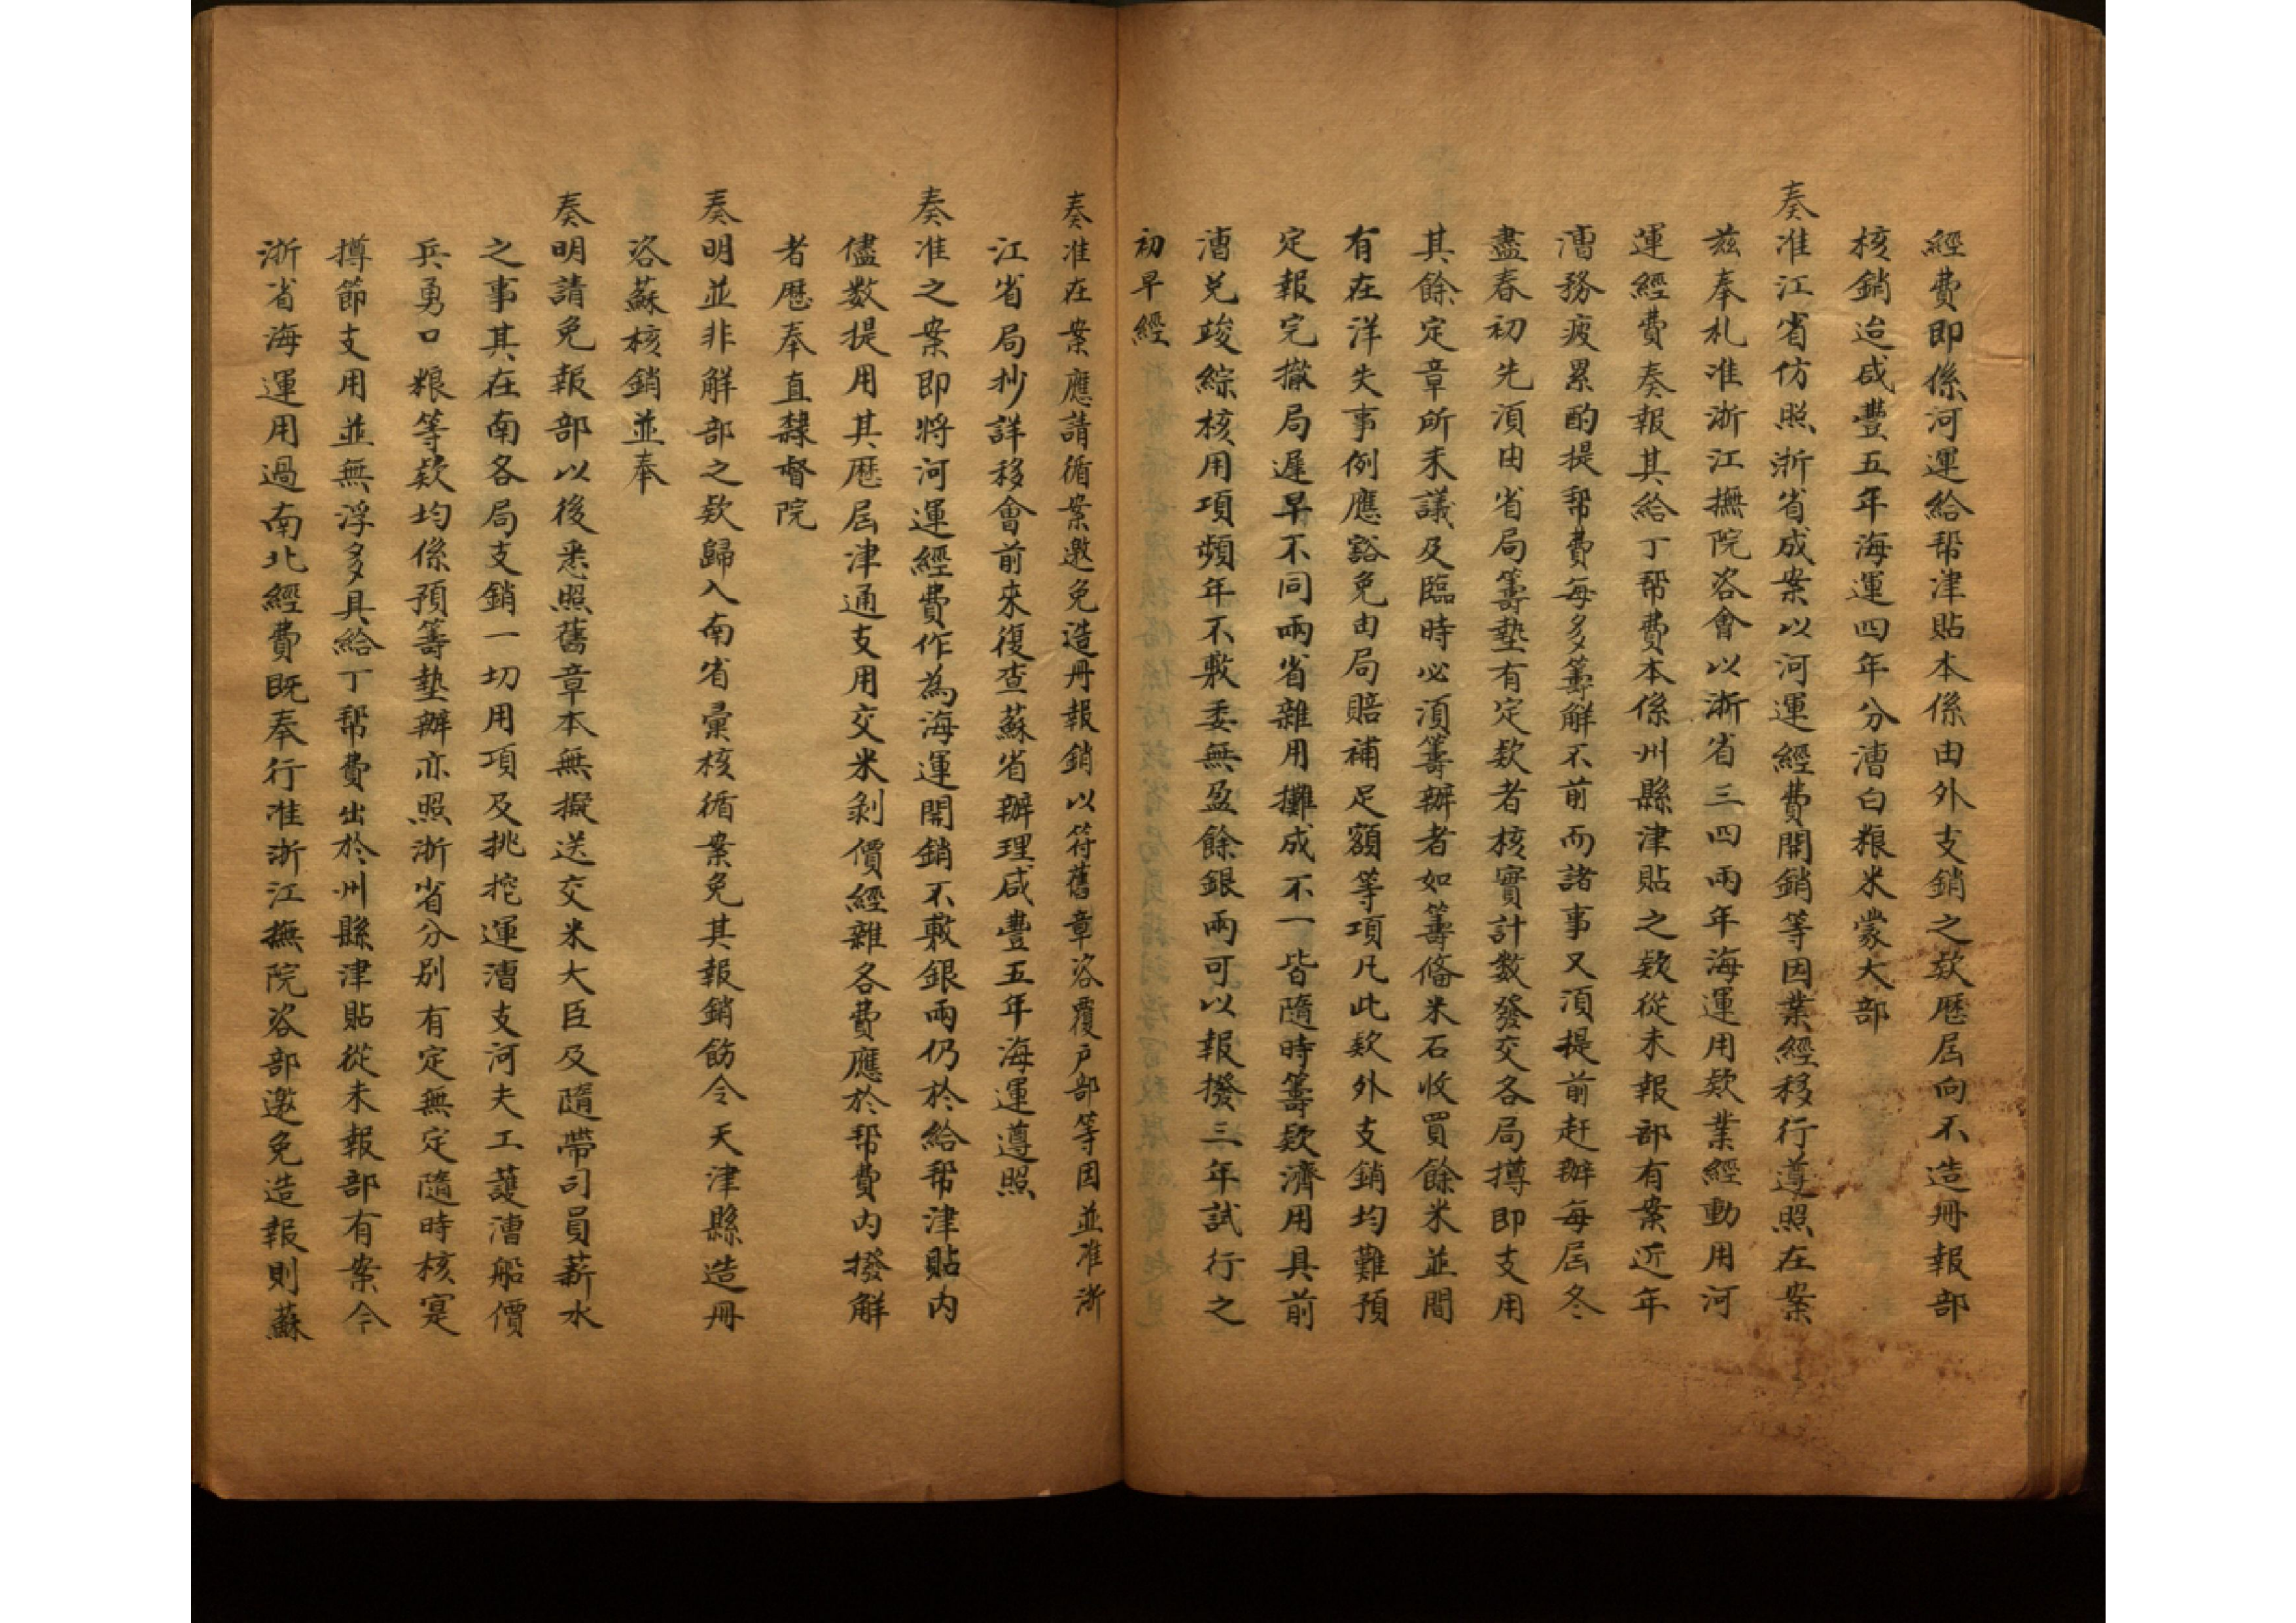 經費即係河運給帮津貼本係由外支銷之欵歷屆向不造冊報部
核銷迨咸豐五年海運四年分漕白粮米蒙大部
奏准江省仿照浙省成案以河運經費開銷等因業經移行遵照在案
茲奉札准浙江撫院咨會以浙省三四兩年海運用欵業經動用河
運經費奏報其給丁帮費本係州縣津貼之欵從未報部有案近年
漕務疲累酌提帮費每多籌觧不前而諸事又湏提前赶辦每屆冬
盡春初先湏由省局籌墊有定欵者核實計數發交各局撙即支用
其餘定章所未議及臨時必湏籌辦者如籌俻米石收買餘米並間
有在洋失事例應豁免由局賠補足額等項凡此欵外支銷均難預
定報完撤局遲早不同兩省雜用攤成不一皆隨時籌欵濟用具前
漕兑竣綜核用項頻年不敷委無盈餘銀兩可以報撥三年試行之
初早經
奏准在案應請循案邀免造冊報銷以符舊章咨覆户部等因並准浙
江省局抄詳移會前來復查蘇省辦理咸豐五年海運遵照
奏准之案即將河運經費作為海運開銷不敷銀兩仍於給帮津貼内
儘数提用其歷屆津通支用交米剥價經雜各費應於帮費内撥觧
者歷奉直隸督院
奏明並非觧部之欵歸入南省彙核循案免其報銷飭令天津縣造冊
咨蘇核銷並奉
奏明請免報部以後悉照舊章本無擬送交米大臣及隨帶司員薪水
之事其在南各局支銷一切用項及挑挖運漕支河夫工護漕船價
兵勇口粮等欵均係預籌墊辦亦照浙省分别有定無定隨時核寔
撙節支用並無浮多具給丁帮費出於州縣津貼從未報部有案今
浙省海運用過南北經費既奉行准浙江撫院咨部邀免造報則蘇